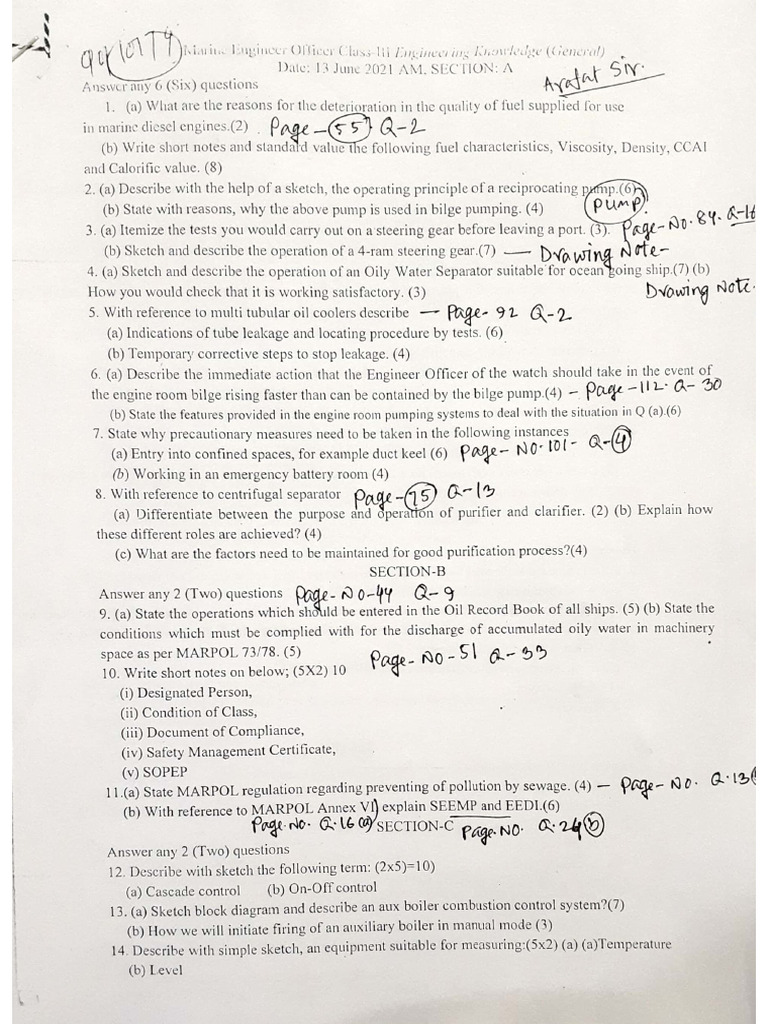 Marine Engineer Officer Class-III Engineering Knowledge (General)
Date: 13 June 2021 AM, SECTION: A
Arafat Sir.
Answer any 6 (Six) questions
1. (a) What are the reasons for the deterioration in the quality of fuel supplied for use
in marine diesel engines.(2) Page - 55 Q-2
(b) Write short notes and standard value the following fuel characteristics, Viscosity, Density, CCAI
and Calorific value. (8)
2. (a) Describe with the help of a sketch, the operating principle of a reciprocating pump.(6)
(b) State with reasons, why the above pump is used in bilge pumping. (4) PUMP.
3. (a) Itemize the tests you would carry out on a steering gear before leaving a port. (3). Page-No.84. Q-16
(b) Sketch and describe the operation of a 4-ram steering gear.(7) — Drawing Note-
4. (a) Sketch and describe the operation of an Oily Water Separator suitable for ocean going ship.(7) (b)
How you would check that it is working satisfactory. (3) Drawing Note.
5. With reference to multi tubular oil coolers describe — Page- 92 Q-2
(a) Indications of tube leakage and locating procedure by tests. (6)
(b) Temporary corrective steps to stop leakage. (4)
6. (a) Describe the immediate action that the Engineer Officer of the watch should take in the event of
the engine room bilge rising faster than can be contained by the bilge pump.(4) - Page-112. Q- 30
(b) State the features provided in the engine room pumping systems to deal with the situation in Q (a).(6)
7. State why precautionary measures need to be taken in the following instances
(a) Entry into confined spaces, for example duct keel (6) Page- No.101- Q-4
(b) Working in an emergency battery room (4)
8. With reference to centrifugal separator Page-75 Q-13
(a) Differentiate between the purpose and operation of purifier and clarifier. (2) (b) Explain how
these different roles are achieved? (4)
(c) What are the factors need to be maintained for good purification process?(4)
SECTION-B
Answer any 2 (Two) questions Page-No-44 Q-9
9. (a) State the operations which should be entered in the Oil Record Book of all ships. (5) (b) State the
conditions which must be complied with for the discharge of accumulated oily water in machinery
space as per MARPOL 73/78. (5)
10. Write short notes on below; (5X2) 10 Page-No-51 Q-33
(i) Designated Person,
(ii) Condition of Class,
(iii) Document of Compliance,
(iv) Safety Management Certificate,
(v) SOPEP
11.(a) State MARPOL regulation regarding preventing of pollution by sewage. (4) — Page-No. Q.13
(b) With reference to MARPOL Annex VI, explain SEEMP and EEDI.(6)
Page.No. Q.16(a) SECTION-C Page.No. Q.24(b)
Answer any 2 (Two) questions
12. Describe with sketch the following term: (2x5)=10)
(a) Cascade control (b) On-Off control
13. (a) Sketch block diagram and describe an aux boiler combustion control system?(7)
(b) How we will initiate firing of an auxiliary boiler in manual mode (3)
14. Describe with simple sketch, an equipment suitable for measuring:(5x2) (a) (a)Temperature
(b) Level